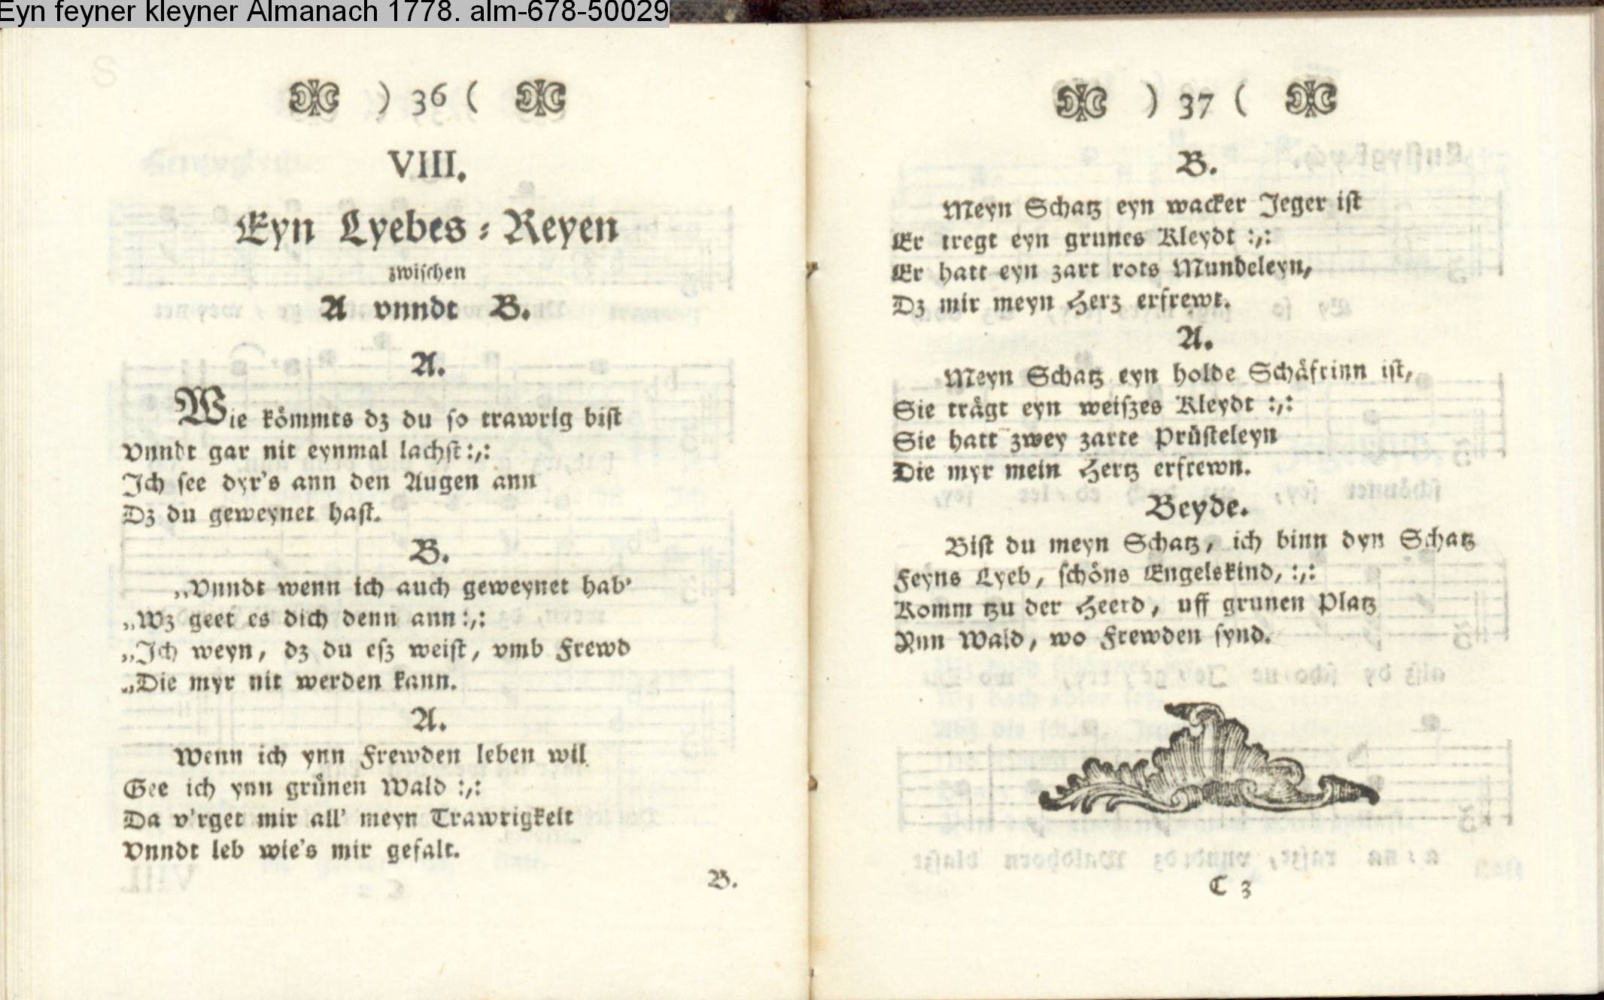 Eyn feyner kleyner Almanach 1778. alm-678-50029
) 36 (
VIII.
Eyn Lyebes-Reyen
zwischen
A vnndt B.
A.
Wie kömmts dz du so trawrig bist
Vnndt gar nit eynmal lachst :,:
Ich see dyr's ann den Augen ann
Dz du geweynet hast.
B.
„Vnndt wenn ich auch geweynet hab'
„Wz geet es dich denn ann :,:
„Ich weyn, dz du esz weist, vmb Frewd
„Die myr nit werden kann.
A.
Wenn ich ynn Frewden leben wil
Gee ich ynn grünen Wald :,:
Da v'rget mir all' meyn Trawrigkeit
Vnndt leb wie's mir gefalt.
B.
) 37 (
B.
Meyn Schatz eyn wacker Jeger ist
Er tregt eyn grunes Kleydt :,:
Er hatt eyn zart rots Mundeleyn,
Dz mir meyn Herz erfrewt.
A.
Meyn Schatz eyn holde Schäfrinn ist,
Sie trägt eyn weiszes Kleydt :,:
Sie hatt zwey zarte Prüsteleyn
Die myr mein Hertz erfrewn.
Beyde.
Bist du meyn Schatz, ich binn dyn Schatz
Feyns Lyeb, schöns Engelskind, :,:
Komm tzu der Heerd, uff grunen Platz
Ynn Wald, wo Frewden synd.
C 3